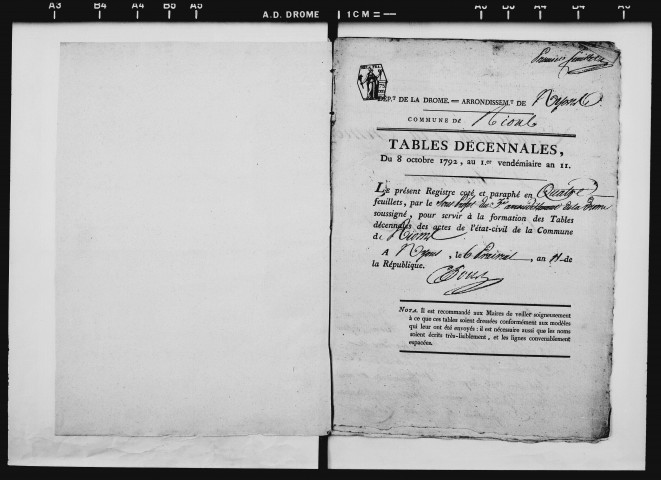 A3 B4 A4 B5 A5 A.D. DROME 1 CM A5 B5 A4 B4 A3
Premier feuillet
DÉP.T DE LA DROME. = ARRONDISSEM.T DE Nyons
COMMUNE DE
TABLES DÉCENNALES,
Du 8 octobre 1792, au 1.er vendémiaire an 11.
Le présent Registre coté et paraphé en Quatre
feuillets, par le Sous préfet du 3e arrondissement de la Drome
soussigné, pour servir à la formation des Tables
décennales des actes de l'état-civil de la Commune
de
A Nyons, le 6 Prairial, an 11 de
la République.
NOTA. Il est recommandé aux Maires de veiller soigneusement
à ce que ces tables soient dressées conformément aux modèles
qui leur ont été envoyés : il est nécessaire aussi que les noms
soient écrits très-lisiblement, et les lignes convenablement
espacées.